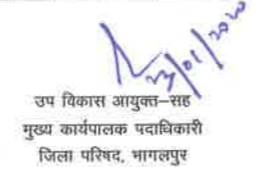 23/01/2020
उप विकास आयुक्त-सह
मुख्य कार्यपालक पदाधिकारी
जिला परिषद, भागलपुर